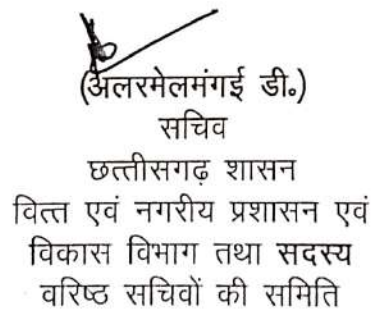 (अलरमेलमंगई डी०)
सचिव
छत्तीसगढ़ शासन
वित्त एवं नगरीय प्रशासन एवं
विकास विभाग तथा सदस्य
वरिष्ठ सचिवों की समिति